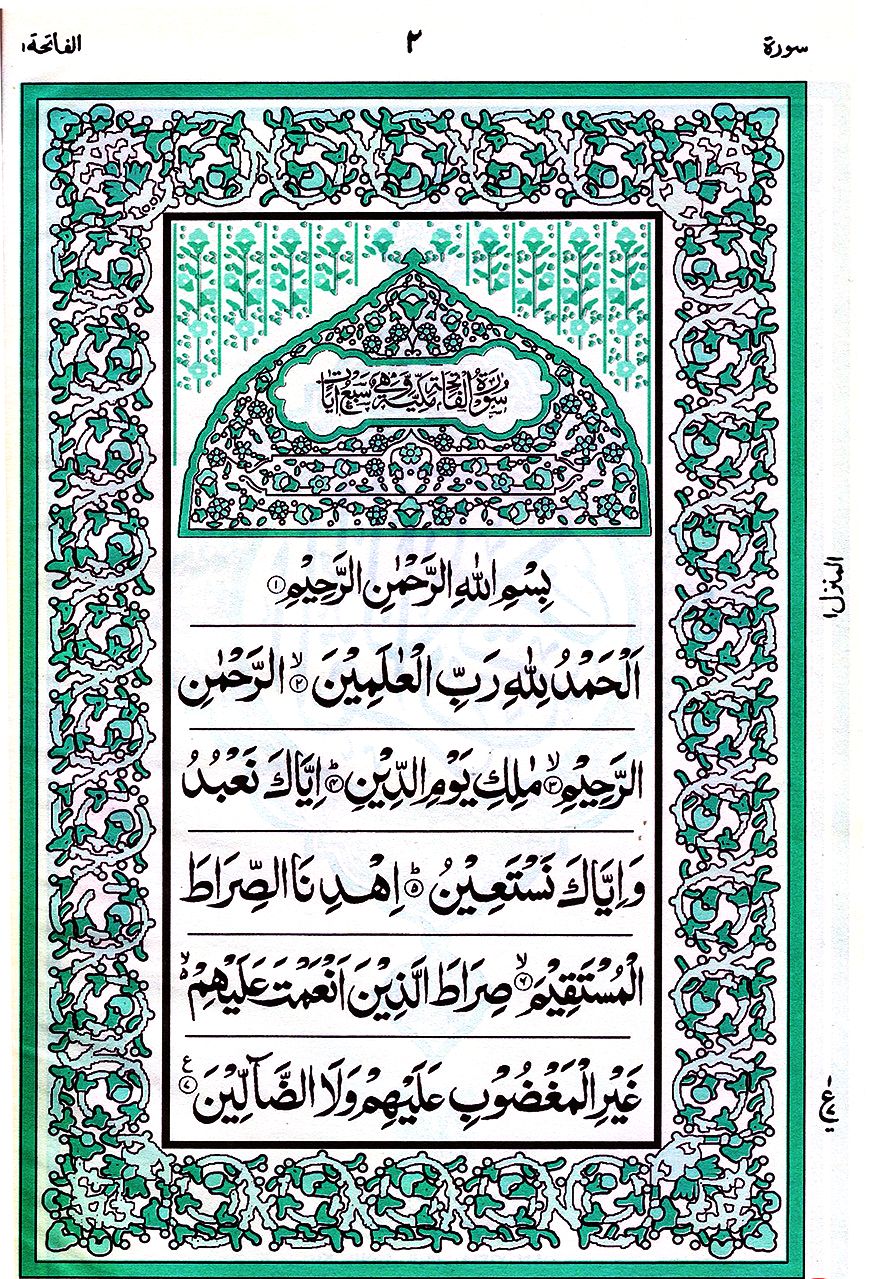 سورة ٢ الفاتحة ١
سُوْرَةُ الْفَاتِحَةِ مَدَنِيَّةٌ وَّهِيَ سَبْعُ اٰيَاتٍ
بِسْمِ اللّٰهِ الرَّحْمٰنِ الرَّحِيْمِ ۝١
اَلْحَمْدُ لِلّٰهِ رَبِّ الْعٰلَمِيْنَ ۙ۝٢ الرَّحْمٰنِ
الرَّحِيْمِ ۙ۝٣ مٰلِكِ يَوْمِ الدِّيْنِ ؕ۝٤ اِيَّاكَ نَعْبُدُ
وَاِيَّاكَ نَسْتَعِيْنُ ؕ۝٥ اِهْدِنَا الصِّرَاطَ
الْمُسْتَقِيْمَ ۙ۝٦ صِرَاطَ الَّذِيْنَ اَنْعَمْتَ عَلَيْهِمْ ۙ
غَيْرِ الْمَغْضُوْبِ عَلَيْهِمْ وَلَا الضَّآلِّيْنَ ۝٧ ع
المنزل ١